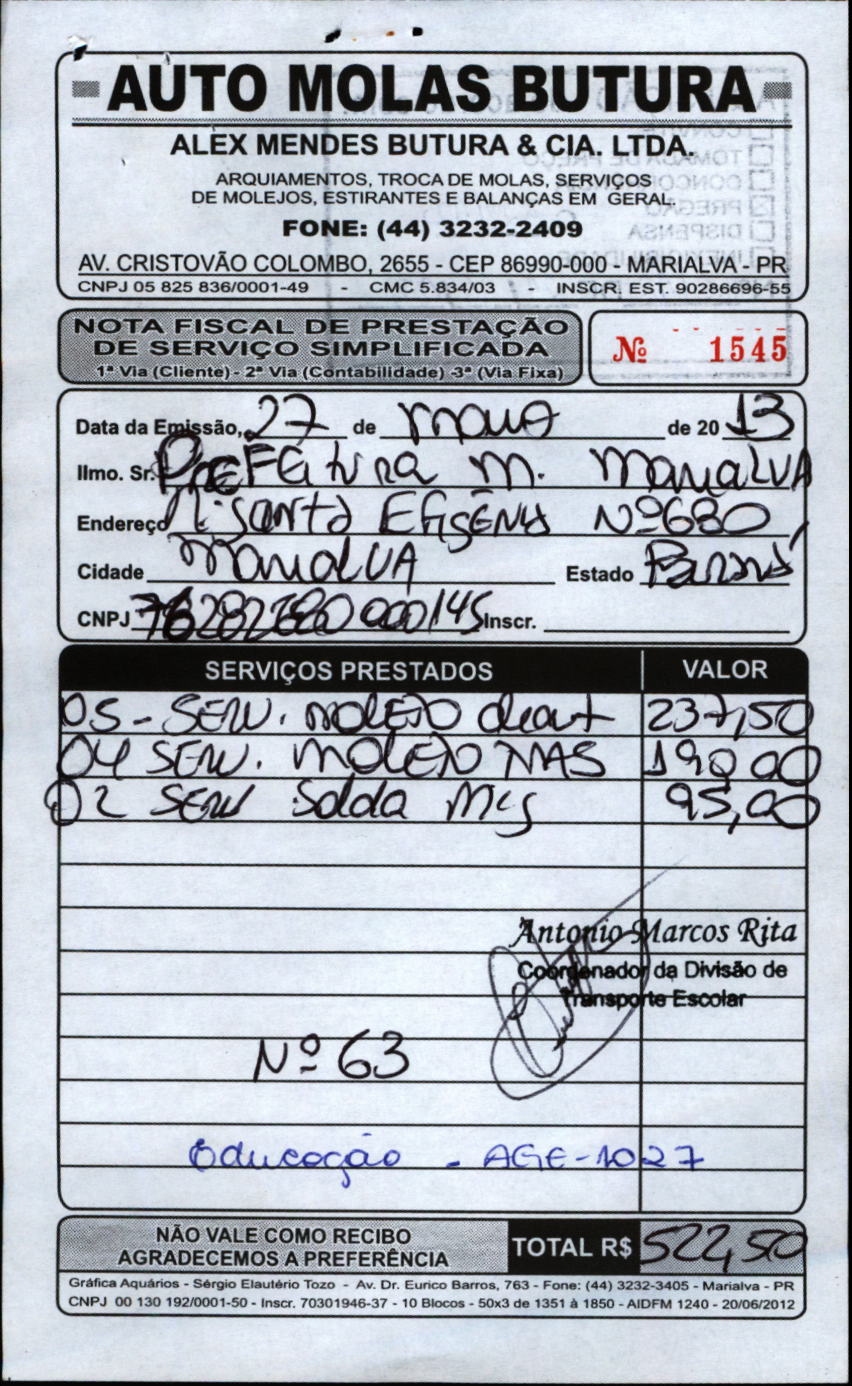 AUTO MOLAS BUTURA
ALEX MENDES BUTURA & CIA. LTDA.
ARQUIAMENTOS, TROCA DE MOLAS, SERVIÇOS
DE MOLEJOS, ESTIRANTES E BALANÇAS EM GERAL.
FONE: (44) 3232-2409
AV. CRISTOVÃO COLOMBO, 2655 - CEP 86990-000 - MARIALVA - PR
CNPJ 05 825 836/0001-49 - CMC 5.834/03 - INSCR. EST. 90286696-55
NOTA FISCAL DE PRESTAÇÃO
DE SERVIÇO SIMPLIFICADA
1ª Via (Cliente) - 2ª Via (Contabilidade) -3ª (Via Fixa)
Nº 1545
Data da Emissão, 27 de de 20 13
Ilmo. Sr. PREFEitura M. MariaLVA
Endereço R. Santa EFigênia Nº 680
Cidade MariaLVA Estado Paraná
CNPJ 76282680000145 Inscr.
SERVIÇOS PRESTADOS VALOR
05 - SERV. MOLEJO 237,50
04 SERV. MOLEJO 190,00
02 SERV Solda 95,00
Antonio Marcos Rita
Coordenador da Divisão de
Transporte Escolar
Nº 63
Educação - AGE-1027
NÃO VALE COMO RECIBO
AGRADECEMOS A PREFERÊNCIA
TOTAL R$ 522,50
Gráfica Aquários - Sérgio Elautério Tozo - Av. Dr. Eurico Barros, 763 - Fone: (44) 3232-3405 - Marialva - PR
CNPJ 00 130 192/0001-50 - Inscr. 70301946-37 - 10 Blocos - 50x3 de 1351 à 1850 - AIDFM 1240 - 20/06/2012